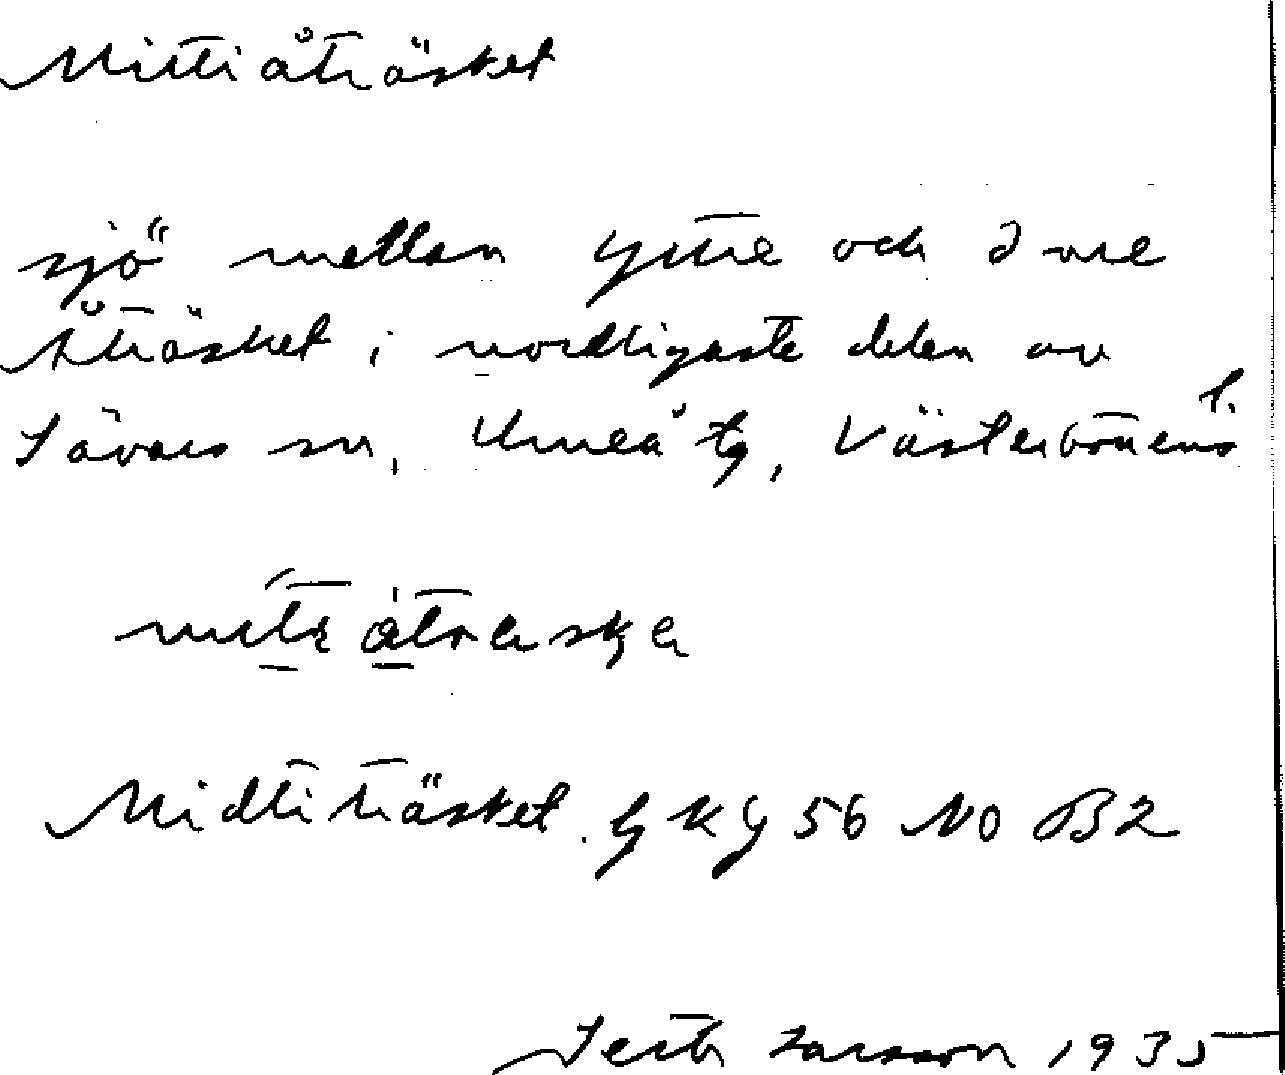 Mittiåträsket
sjö mellan yttre och inre
Åträsket i nordligaste delen av
Sävars sn, Umeå tg, Västerbottens l.
Midtiträsket. GKG 56 NO B2
Seth Larsson 1935